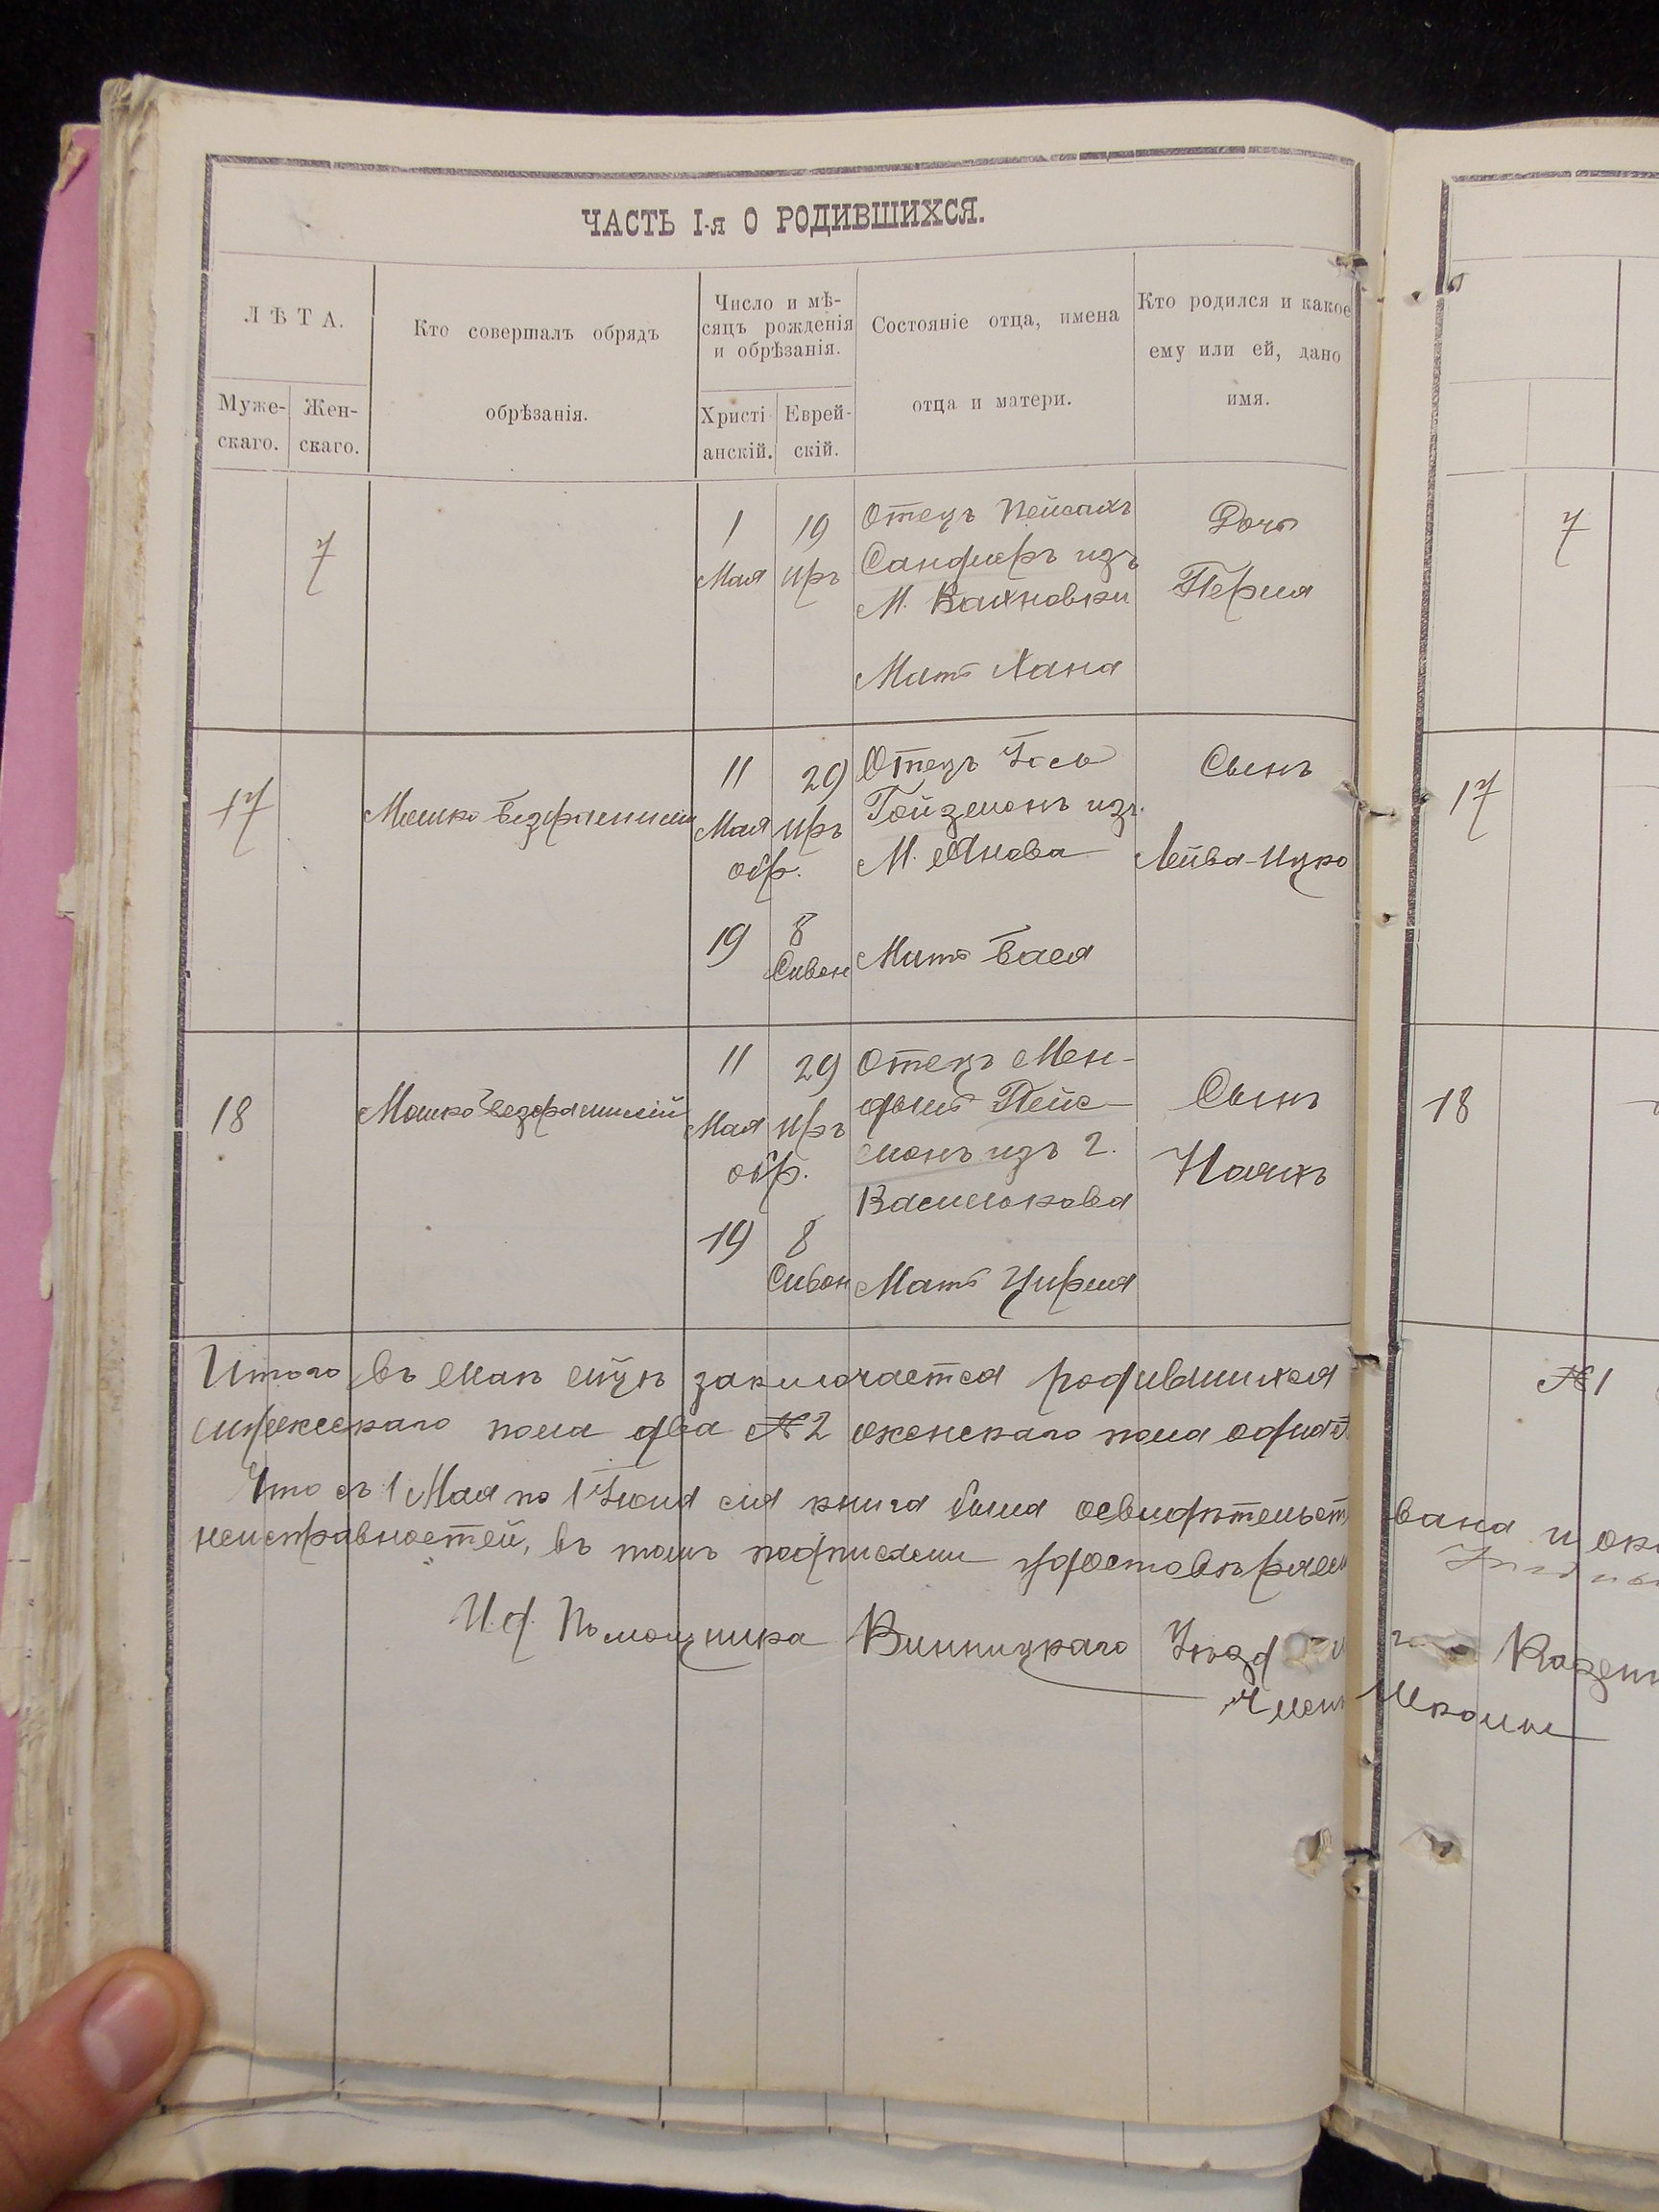 ЧАСТЬ I-я О РОДИВШИХСЯ.
ЛѢТА.
Муже-
скаго.
Жен-
скаго.
Кто совершалъ обрядъ
обрѣзанія.
Число и мѣ-
сяцъ рожденія
и обрѣзанія.
Христі
анскій.
Еврей-
скій.
Состояніе отца, имена
отца и матери.
Кто родился и какое
ему или ей, дано
имя.
7
1
Мая
19
Иръ
Отецъ Пейсахъ
Сандлеръ изъ
М. Вахновки
Мать Хана
Дочь
Перля
7
17
Мошко Безфамилій
11
Мая
29
Иръ
обр.
19
8
Сиван
Отецъ Іось
Гойзманъ изъ
М. Янова
Мать Бася
Сынъ
Лейба-Ицко
17
18
Мошко Безфамилій
11
Мая
29
Иръ
обр.
19
8
Сиван
Отецъ Мен-
дель Пейс-
манъ изъ г.
Василькова
Мать Цирля
Сынъ
Нояхъ
18
Итого въ Маѣ м-цѣ заключается родившихся
мужескаго пола два №2 женскаго пола одна
№1
Что съ 1 Мая по 1 Іюня сія книга была освидѣтельст
вана и ока
неисправностей, въ томъ подписами удостовѣряем
И.д. Помощника Винницкаго Уѣзд
Казен
Член